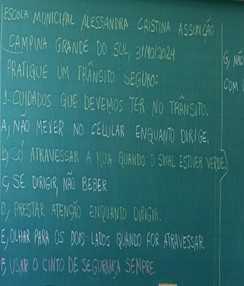 ESCOLA MUNICIPAL ALESSANDRA CRISTINA ASSUNÇÃO
CAMPINA GRANDE DO SUL, 31/10/2024
PRATIQUE UM TRÂNSITO SEGURO:
1-CUIDADOS QUE DEVEMOS TER NO TRÂNSITO.
A, NÃO MEXER NO CELULAR ENQUANTO DIRIGE.
B, SÓ ATRAVESSAR A RUA QUANDO O SINAL ESTIVER VERDE
C, SE DIRIGIR, NÃO BEBER.
D, PRESTAR ATENÇÃO ENQUANTO DIRIGIR.
E, OLHAR PARA OS DOIS LADOS QUANDO FOR ATRAVESSAR.
F, USAR O CINTO DE SEGURANÇA SEMPRE
G,
COM